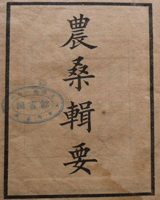 農桑輯要